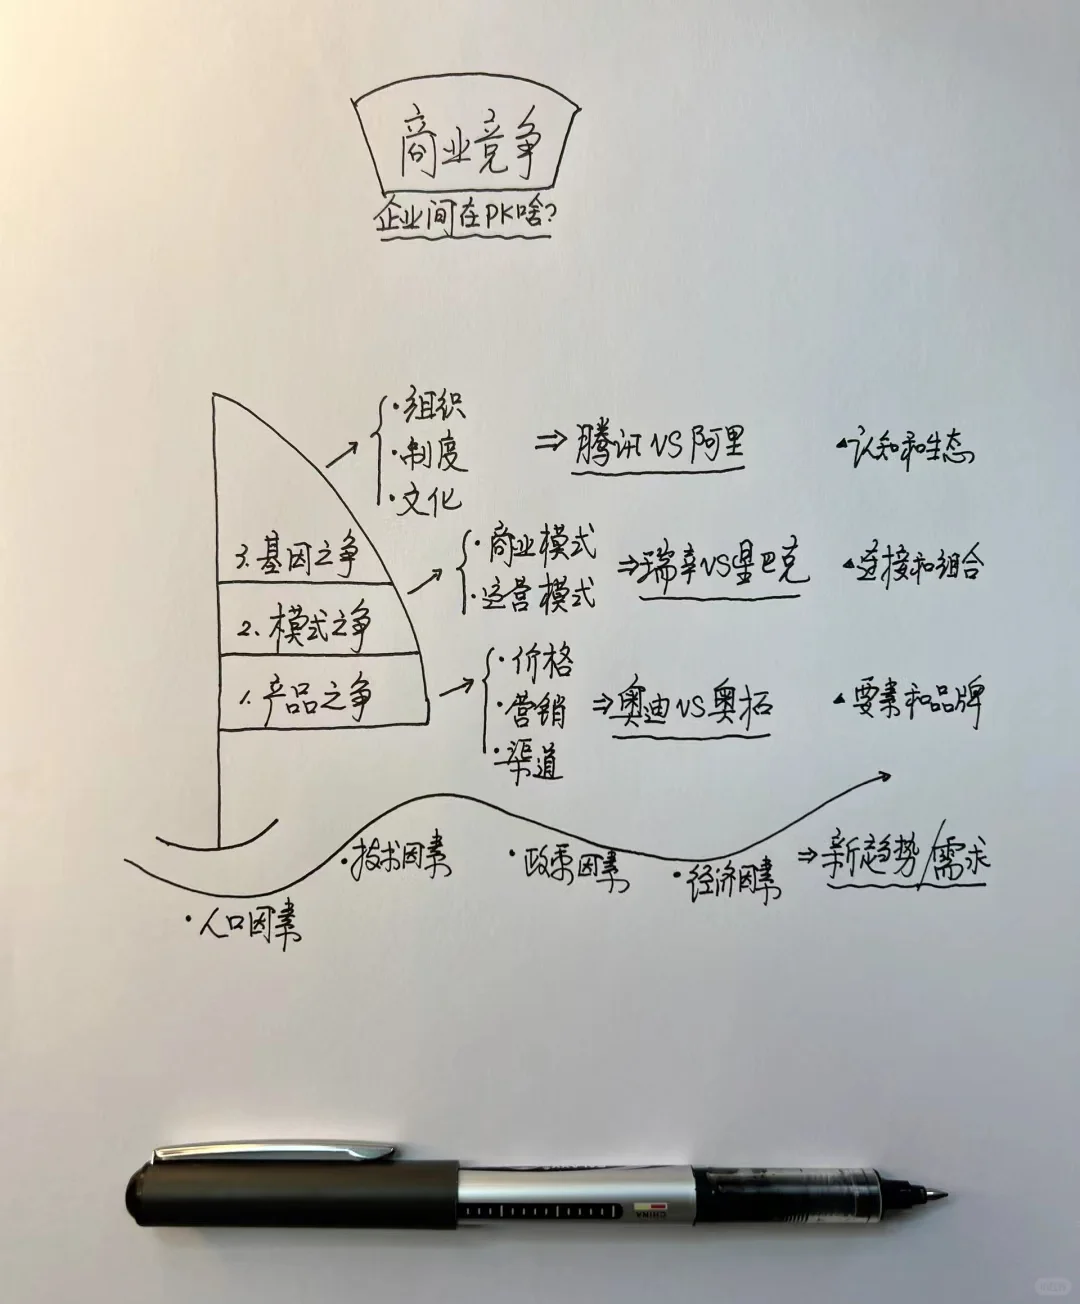 商业竞争
企业间在PK啥?
·组织
·制度
·文化
⇒腾讯VS阿里
认知和生态
3.基因之争
·商业模式
·运营模式
⇒瑞幸VS星巴克
连接和组合
2.模式之争
·价格
·营销
·渠道
⇒奥迪VS奥拓
要素和品牌
1.产品之争
·人口因素
·技术因素
·政策因素
·经济因素
⇒新趋势/需求
CHINA